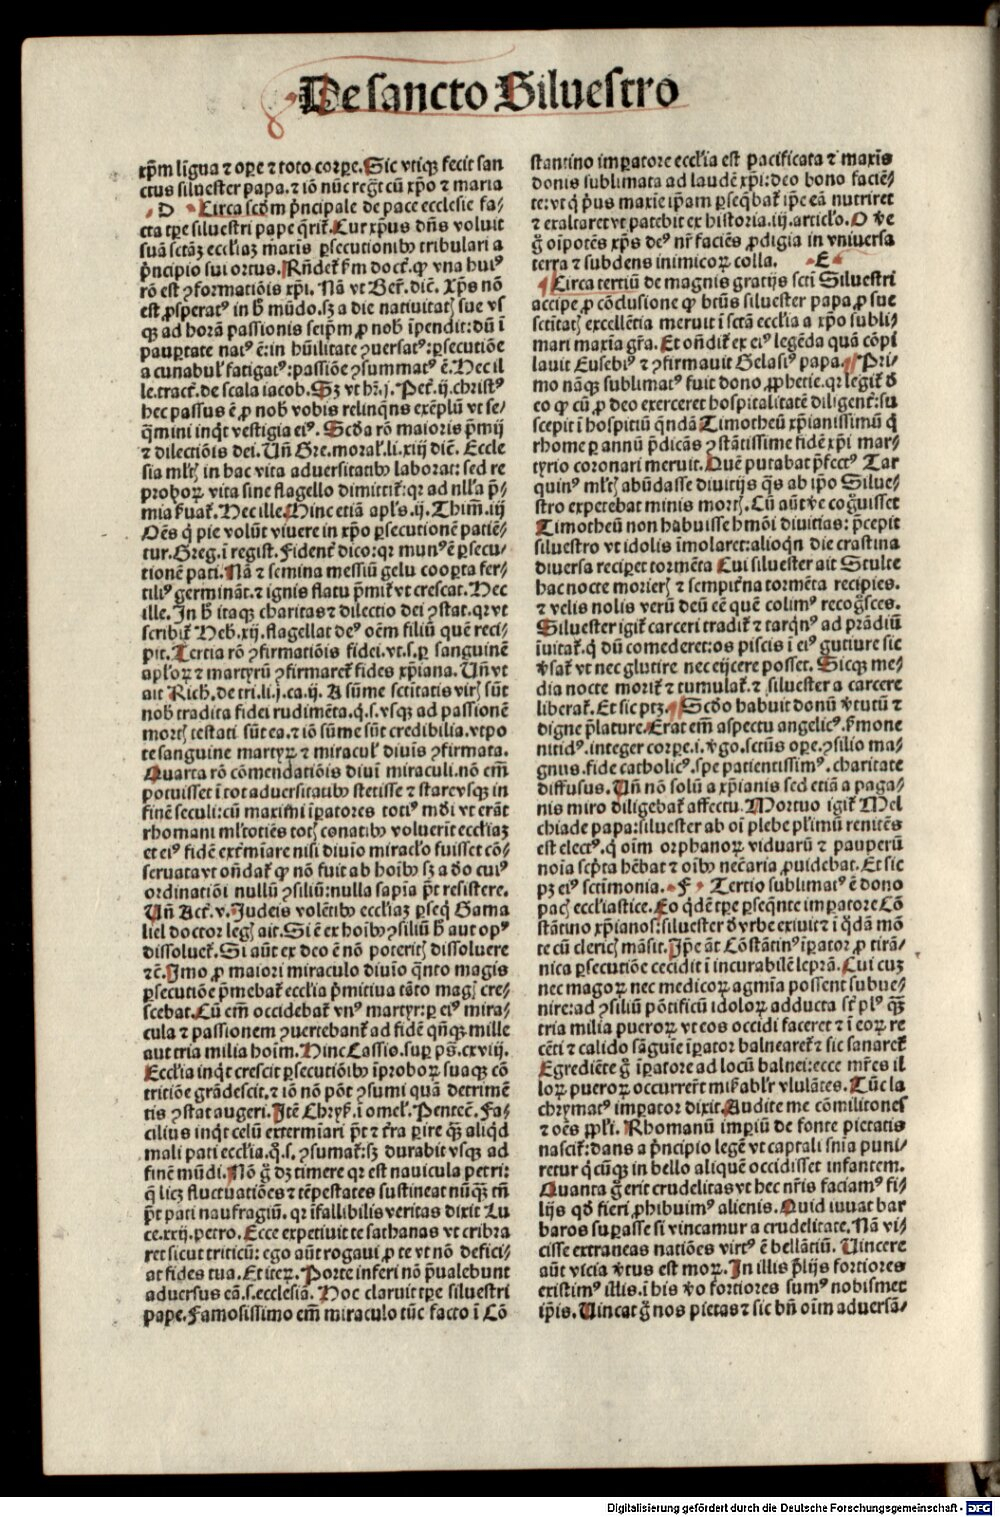 De sancto Siluestro
xp̄m lingua ⁊ oꝑe ⁊ toto corꝑe. Sic vtiqꝫ fecit san
ctus siluester papa. ⁊ iō nūc regt̄ cū xp̄o ⁊ maria
D Circa scd̄m p̄ncipale de pace ecclesie fa-
cta tꝑe siluestri pape q̄rit᷑. Cur xp̄us dn̄s voluit
suā sctāꝫ eccl̓iaꝫ maxīs ꝑsecutionibꝰ tribulari a
p̄ncipio sui ortus. Rn̄det᷑ ẜm doct̄. ꝙ vna huiꝰ
rō est ꝯformatiōis xp̄i. Nā vt Ber̄. dic̄. Xp̄s nō
est ꝓsperatꝰ in h̄ mūdo. sꝫ a die natiuitatꝭ sue vs
qꝫ ad horā passionis seip̄m ꝓ nob̄ īpendit: dū ī
pauꝑtate natꝰ ē: in hūilitate ꝯuersatꝰ: ꝑsecutiōe
a cunabul̓ fatigatꝰ: passiōe ꝯsummatꝰ ē. Hec il
le. tract̄. de scala iacob. Sꝫ vt hr̄. j. Pet̄. ij. christꝰ
hec passus ē ꝓ nob̄ vobis relinqn̄s exēplū vt se-
q̄mini inqt̄ vestigia eiꝰ. Scd̄a rō maioris p̄mij
⁊ dilectiōis dei. Vn̄ Gre. moral̓. li. xiij dic̄. Eccle
sia ml̓tꝭ in hac vita aduersitatibꝰ laborat: sed re
proboꝝ vita sine flagello dimittit᷑: qr ad nll̓a p̄-
mia ẜuat᷑. Hec ille. Hinc etiā apl̓s. ij. Thim. iij
Oēs q̄ pie volūt viuere in xp̄o ꝑsecutionē patiē-
tur. Greg. ī regist. Fident̄ dico: qr munꝰ ē ꝑsecu-
tionē pati. Nā ⁊ semina messiū gelu cooꝑta fer-
tiliꝰ germināt. ⁊ ignis flatu p̄mit᷑ vt crescat. Hec
ille. In h̄ itaqꝫ charitas ⁊ dilectio dei ꝯstat. qr vt
scribit᷑ Heb. xij. flagellat deꝰ oēm filiū quē reci-
pit. Tertia rō ꝯfirmatiōis fidei. vt. s. ꝑ sanguinē
apl̓oꝝ ⁊ martyrū ꝯfirmaret᷑ fides xp̄iana. Vn̄ vt
ait Rich. de tri. li. j. ca. ij. A sūme sctitatis virꝭ sūt
nob̄ tradita fidei rudimēta. q̄. s. vsqꝫ ad passionē
mortꝭ testati sūt ea. ⁊ iō sūme sūt credibilia. vtpo
te sanguine martyꝝ ⁊ miracul̓ diuīs ꝯfirmata.
Quarta rō cōmendatiōis diuī miraculi. nō em̄
potuisset ī tot aduersitatibꝰ stetisse ⁊ stare vsqꝫ in
finē seculi: cū maximi īꝑatores totiꝰ mūdi vt erāt
rhomani ml̓totiēs totꝭ conatibꝰ voluerīt eccl̓iaꝫ
et eiꝰ fidē ext̄mīare nisi diuīo miracl̓o fuisset cō-
seruata vt on̄dat᷑ ꝙ nō fuit ab hoībꝰ sꝫ a deo cuiꝰ
ordinatiōi nullū ꝯsiliū: nulla sapīa p̄t resistere.
Vn̄ Act̄. v. Judeis volētibꝰ eccl̓iaꝫ ꝑseq̄ Gama
liel doctor legꝭ ait. Si ē ex hoībꝰ ꝯsiliū h̄ aut opꝰ
dissoluet᷑. Si aūt ex deo ē nō poteritꝭ dissoluere
⁊c̄. Imo ꝓ maiori miraculo diuīo qn̄to magis
ꝑsecutiōe p̄mebat᷑ eccl̓ia p̄mitiua tāto magꝭ cre-
scebat. Cū em̄ occidebat᷑ vnꝰ martyr: ꝑ eiꝰ mira-
cula ⁊ passionem ꝯuertebant᷑ ad fidē qn̄qꝫ mille
aut tria milia hoīm. Hinc Cassio. suꝑ ps̄. cxviij.
Eccl̓ia inqt̄ crescit ꝑsecutiōibꝰ īproboꝝ suaqꝫ cō
tritiōe grādescit. ⁊ iō nō pōt ꝯsumi qua detrimē
tis ꝯstat augeri. Itē Chrys̄. ī omel̓. Pentec̄. Fa-
cilius inqt̄ celū extermīari p̄t ⁊ t̄ra ꝑire qꝫ̄ aliqd̄
mali pati eccl̓ia. q̄. s. ꝯsumat᷑: sꝫ durabit vsqꝫ ad
finē mūdi. Nō g̊ dꝫ timere qr est nauicula petri:
q̄ licꝫ fluctuatiōes ⁊ tēpestates sustineat nūqꝫ̄ tn̄
p̄t pati naufragiū. qr īfallibilis veritas dixit Lu
ce. xxij. petro. Ecce expetiuit te sathanas vt cribra
ret sicut triticū: ego aūt rogaui ꝓ te vt nō defici-
at fides tua. Et iteꝝ. Porte inferi nō p̄ualebunt
aduersus eā. s. ecclesiā. Hoc claruit tꝑe siluestri
pape. Famosissimo em̄ miraculo tūc facto ī Cō
stantino imꝑatore eccl̓ia est pacificata ⁊ maxīs
donis sublimata ad laudē xp̄i: deo bono faciē-
te: vt q̄ pꝰ maxie ip̄am ꝑseq̄bat᷑ ip̄e eā nutriret
⁊ exaltaret vt patebit ex historia. iij. articl̓o. O ve
g̊ oīpotēs xp̄s deꝰ nr̄ faciēs ꝓdigia in vniuersa
terra ⁊ subdens inimicoꝝ colla. E
Circa tertiū de magnis gratijs sctī Siluestri
accipe ꝓ cōclusione ꝙ btūs siluester papa ꝓ sue
sctītatꝭ excellētia meruit ī sctā eccl̓ia a xp̄o subli-
mari maxīa gr̄a. Et on̄dit᷑ ex eiꝰ legēda quā cōpi
lauit Eusebiꝰ ⁊ ꝯfirmauit Gelasiꝰ papa. Pri-
mo nāqꝫ sublimatꝰ fuit dono ꝓphetie. qr legit᷑ d̄
eo ꝙ cū ꝓ deo exerceret hospitalitatē diligent̄: su
scepit ī hospitiū qn̄dā Timotheū xp̄ianissimū q̄
rhome ꝑ annū p̄dicās ꝯstātissime fidē xp̄i mar-
tyrio coronari meruit. Quē putabat p̄fectꝰ Tar
quinꝰ ml̓tꝭ abūdasse diuitijs q̄s ab ip̄o Silue-
stro expetebat minis mortꝭ. Cū aūt ve cog̊uisset
Timotheū non habuisse hmōi diuitias: p̄cepit
siluestro vt idolis īmolaret: alioqn̄ die crastina
diuersa reciꝑet tormēta Cui siluester ait Stulte
hac nocte morierꝭ ⁊ sempit̄na tormēta recipies.
⁊ velis nolis verū deū eē quē colimꝰ recog̊sces.
Siluester igit᷑ carceri tradit᷑ ⁊ tarqnꝰ ad prādiū
īuitat᷑. q̄ dū comederet: os piscis ī eiꝰ gutture sic
v̄sat᷑ vt nec glutire nec eijcere posset. Sicqꝫ me-
dia nocte morit᷑ ⁊ tumulat᷑. ⁊ siluester a carcere
liberat᷑. Et sic ptꝫ. Scd̄o habuit donū v̄tutū ⁊
digne p̄lature. Erat em̄ aspectu angelicꝰ. ẜmone
nitidꝰ. integer corꝑe. i. v̄go. sctūs oꝑe. ꝯsilio ma-
gnus. fide catholicꝰ. spe patientissimꝰ. charitate
diffusus. Vn̄ nō solū a xp̄ianis sed etiā a paga-
nis miro diligebat᷑ affectu. Mortuo igit᷑ Mel
chiade papa: siluester ab oī plebe pl̓imū renitēs
est electꝰ. q̄ oīm orphanoꝝ viduarū ⁊ pauperū
noīa scp̄ta hēbat ⁊ oībꝰ necͣaria ꝓuidebat. Et sic
pꝫ eiꝰ sctīmonia. F Tertio sublimatꝰ ē dono
pacꝭ eccl̓iastice. Eo qd̄ē tꝑe ꝑseqn̄te imꝑatore Cō
stātino xp̄ianos: siluester d̄ vrbe exiuit ⁊ ī q̄dā mō
te cū clericꝭ māsit. Ip̄e aūt Cōstātinꝰ īꝑator ꝓ tirā-
nica ꝑsecutiōe cecidit ī incurabilē leprā. Cui cuꝫ
nec magoꝝ nec medicoꝝ agmīa possent subue-
nire: ad ꝯsiliū pōtificū idoloꝝ adducta st̄ plꝰ qꝫ̄
tria milia pueroꝝ vt eos occidi faceret ⁊ ī eoꝝ re
cēti ⁊ calido sāguīe īꝑator balnearet᷑ ⁊ sic sanaret᷑
Egrediēte g̊ īꝑatore ad locū balnei: ecce mr̄es il
loꝝ pueroꝝ occurrer̄t mirabl̓r vlulātes. Tūc la
chrymatꝰ imꝑator dixit. Audite me cōmilitones
⁊ oēs ppl̓i. Rhomanū imꝑiū de fonte pietatis
nascit᷑: dans a p̄ncipio legē vt capitali snīa puni-
retur q̄cūqꝫ in bello aliquē occidisset infantem.
Quanta g̊ erit crudelitas vt hec nr̄is faciamꝰ fi-
lijs qd̄ fieri ꝓhibuimꝰ alienis. Quid iuuat bar
baros suꝑasse si vincamur a crudelitate. Nā vi-
cisse extraneas natiōes virtꝰ ē bellātiū. Vincere
aūt vicia v̄tus est moꝝ. In illis p̄lijs fortiores
existimꝰ illis. ī his v̄o fortiores sumꝰ nobismet
ip̄is. Vincat g̊ nos pietas ⁊ sic bn̄ oīm aduersā-
Digitalisierung gefördert durch die Deutsche Forschungsgemeinschaft - DFG